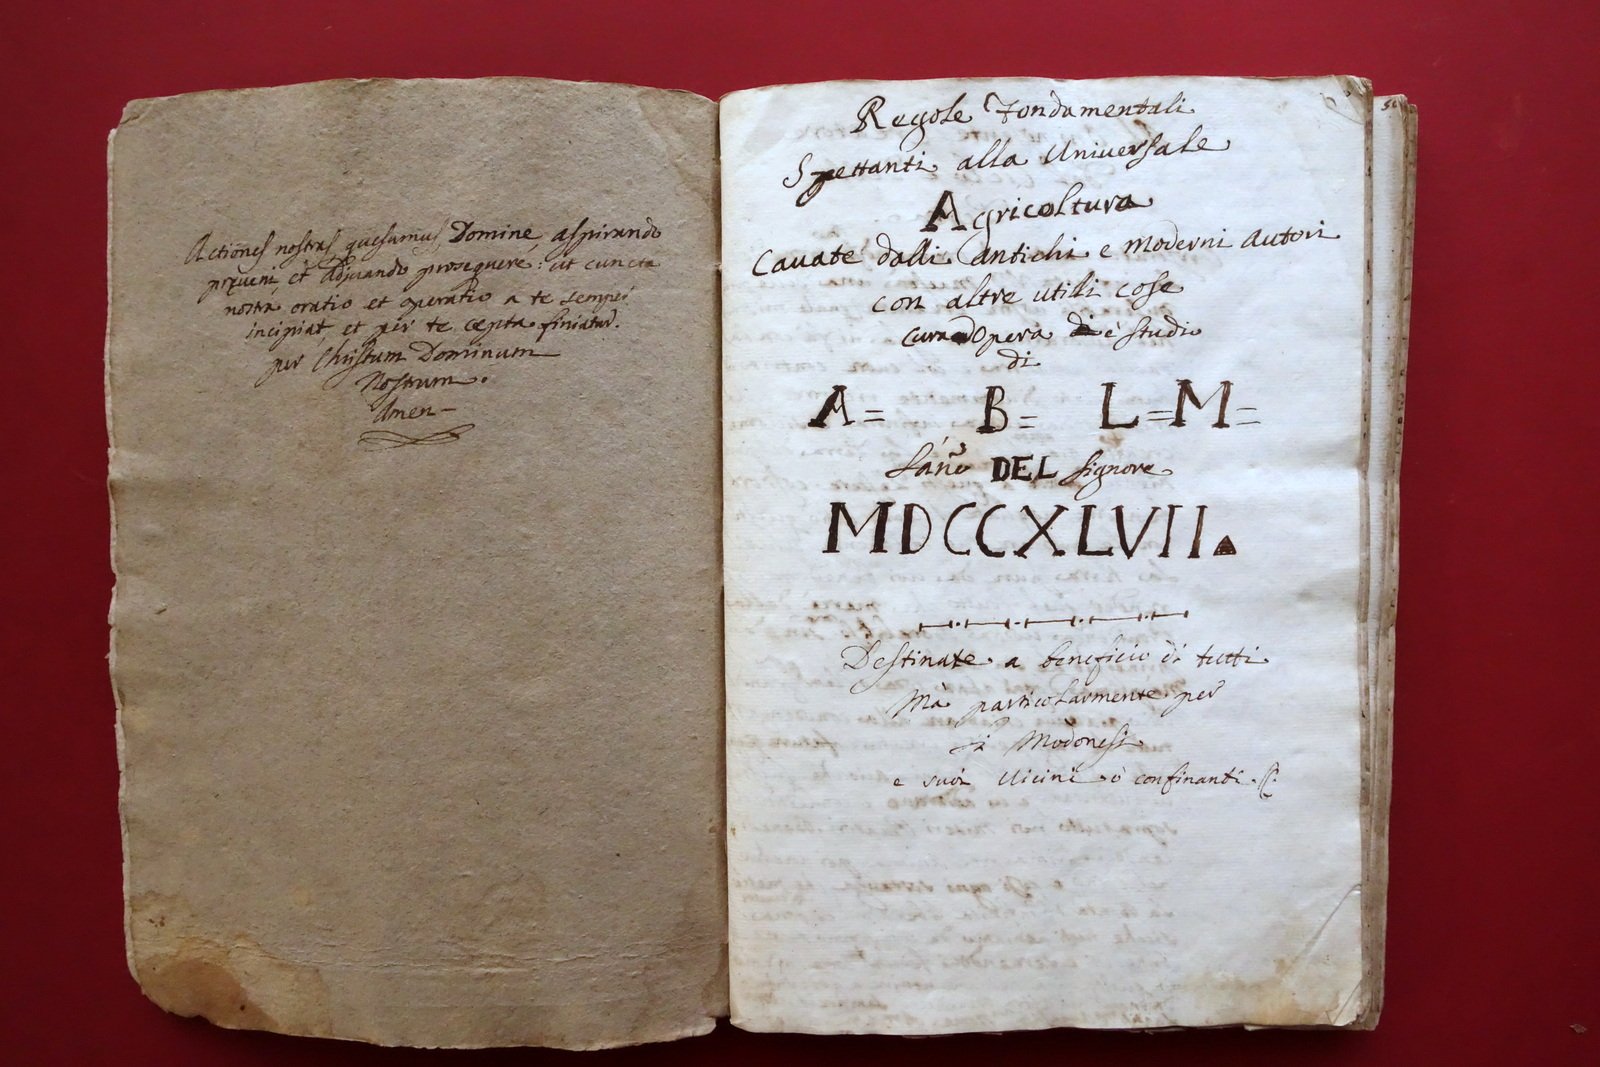 Actiones nostras quesumus Domine, aspirando
preveni, et Adjuando prosequere: ut cuncta
nostra oratio et operatio a te semper
incipiat et per te cepta finiatur.
per Christum Dominum
Nostrum.
Amen
Regole Fondamentali
Spettanti alla Universale
Agricoltura
Cavate dalli antichi e Moderni Autori
con altre utili cose
cura Opera è studio
di
A= B= L=M=
DEL signore
MDCCXLVII
Destinate a beneficio di tutti
Mà particolarmente per
i Modonesi
e suoi Vicini ò confinanti.